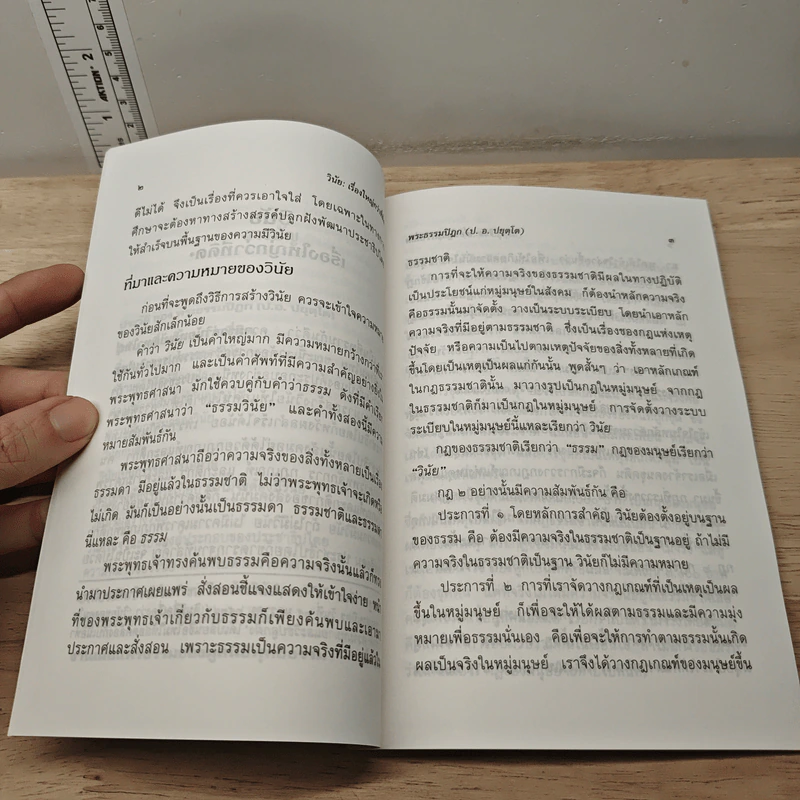 AKTION
1
2
1
2
3
4
5
6
๒
วินัย: เรื่องใหญ่กว่าที่
ดีไม่ได้ จึงเป็นเรื่องที่ควรเอาใจใส่ โดยเฉพาะในทาง
ศึกษาจะต้องหาทางสร้างสรรค์ปลูกฝังพัฒนาประชาธิปไตย
ให้สำเร็จบนพื้นฐานของความมีวินัย
ที่มาและความหมายของวินัย
ก่อนที่จะพูดถึงวิธีการสร้างวินัย ควรจะเข้าใจความหมาย
ของวินัยสักเล็กน้อย
คำว่า วินัย เป็นคำใหญ่มาก มีความหมายกว้างกว่าที่
ใช้กันทั่วไปมาก และเป็นคำศัพท์ที่มีความสำคัญอย่างยิ่ง
พระพุทธศาสนา มักใช้ควบคู่กับคำว่าธรรม ดังที่มีคำเรียก
พระพุทธศาสนาว่า “ธรรมวินัย” และคำทั้งสองนี้มีความ
หมายสัมพันธ์กัน
พระพุทธศาสนาถือว่าความจริงของสิ่งทั้งหลายเป็น
ธรรมดา มีอยู่แล้วในธรรมชาติ ไม่ว่าพระพุทธเจ้าจะเกิดหรือ
ไม่เกิด มันก็เป็นอย่างนั้นเป็นธรรมดา ธรรมชาติและธรรมดา
นี่แหละ คือ ธรรม
พระพุทธเจ้าทรงค้นพบธรรมคือความจริงนั้นแล้วก็
นำมาประกาศเผยแพร่ สั่งสอนชี้แจงแสดงให้เข้าใจง่าย หน้า
ที่ของพระพุทธเจ้าเกี่ยวกับธรรมก็เพียงค้นพบและเอามา
ประกาศและสั่งสอน เพราะธรรมเป็นความจริงที่มีอยู่แล้วใน
พระธรรมปิฎก (ป. อ. ปยุตฺโต)
๓
ธรรมชาติ
การที่จะให้ความจริงของธรรมชาติมีผลในทางปฏิบัติ
เป็นประโยชน์แก่หมู่มนุษย์ในสังคม ก็ต้องนำหลักความจริง
คือธรรมนั้นมาจัดตั้ง วางเป็นระบบระเบียบ โดยนำเอาหลัก
ความจริงที่มีอยู่ตามธรรมชาติ ซึ่งเป็นเรื่องของกฎแห่งเหตุ
ปัจจัย หรือความเป็นไปตามเหตุปัจจัยของสิ่งทั้งหลายที่เกิด
ขึ้นโดยเป็นเหตุเป็นผลแก่กันนั้น พูดสั้นๆ ว่า เอาหลักเกณฑ์
ในกฎธรรมชาตินั้น มาวางรูปเป็นกฎในหมู่มนุษย์ จากกฎ
ในธรรมชาติก็มาเป็นกฎในหมู่มนุษย์ การจัดตั้งวางระบบ
ระเบียบในหมู่มนุษย์นี้แหละเรียกว่า วินัย
กฎของธรรมชาติเรียกว่า “ธรรม” กฎของมนุษย์เรียกว่า
“วินัย”
กฎ ๒ อย่างนั้นมีความสัมพันธ์กัน คือ
ประการที่ ๑ โดยหลักการสำคัญ วินัยต้องตั้งอยู่บนฐาน
ของธรรม คือ ต้องมีความจริงในธรรมชาติเป็นฐานอยู่ ถ้าไม่มี
ความจริงในธรรมชาติเป็นฐาน วินัยก็ไม่มีความหมาย
ประการที่ ๒ การที่เราจัดวางกฎเกณฑ์ที่เป็นเหตุเป็นผล
ขึ้นในหมู่มนุษย์ ก็เพื่อจะให้ได้ผลตามธรรมและมีความมุ่ง
หมายเพื่อธรรมนั่นเอง คือเพื่อจะให้การทำตามธรรมนั้นเกิด
ผลเป็นจริงในหมู่มนุษย์ เราจึงได้วางกฎเกณฑ์ของมนุษย์ขึ้น